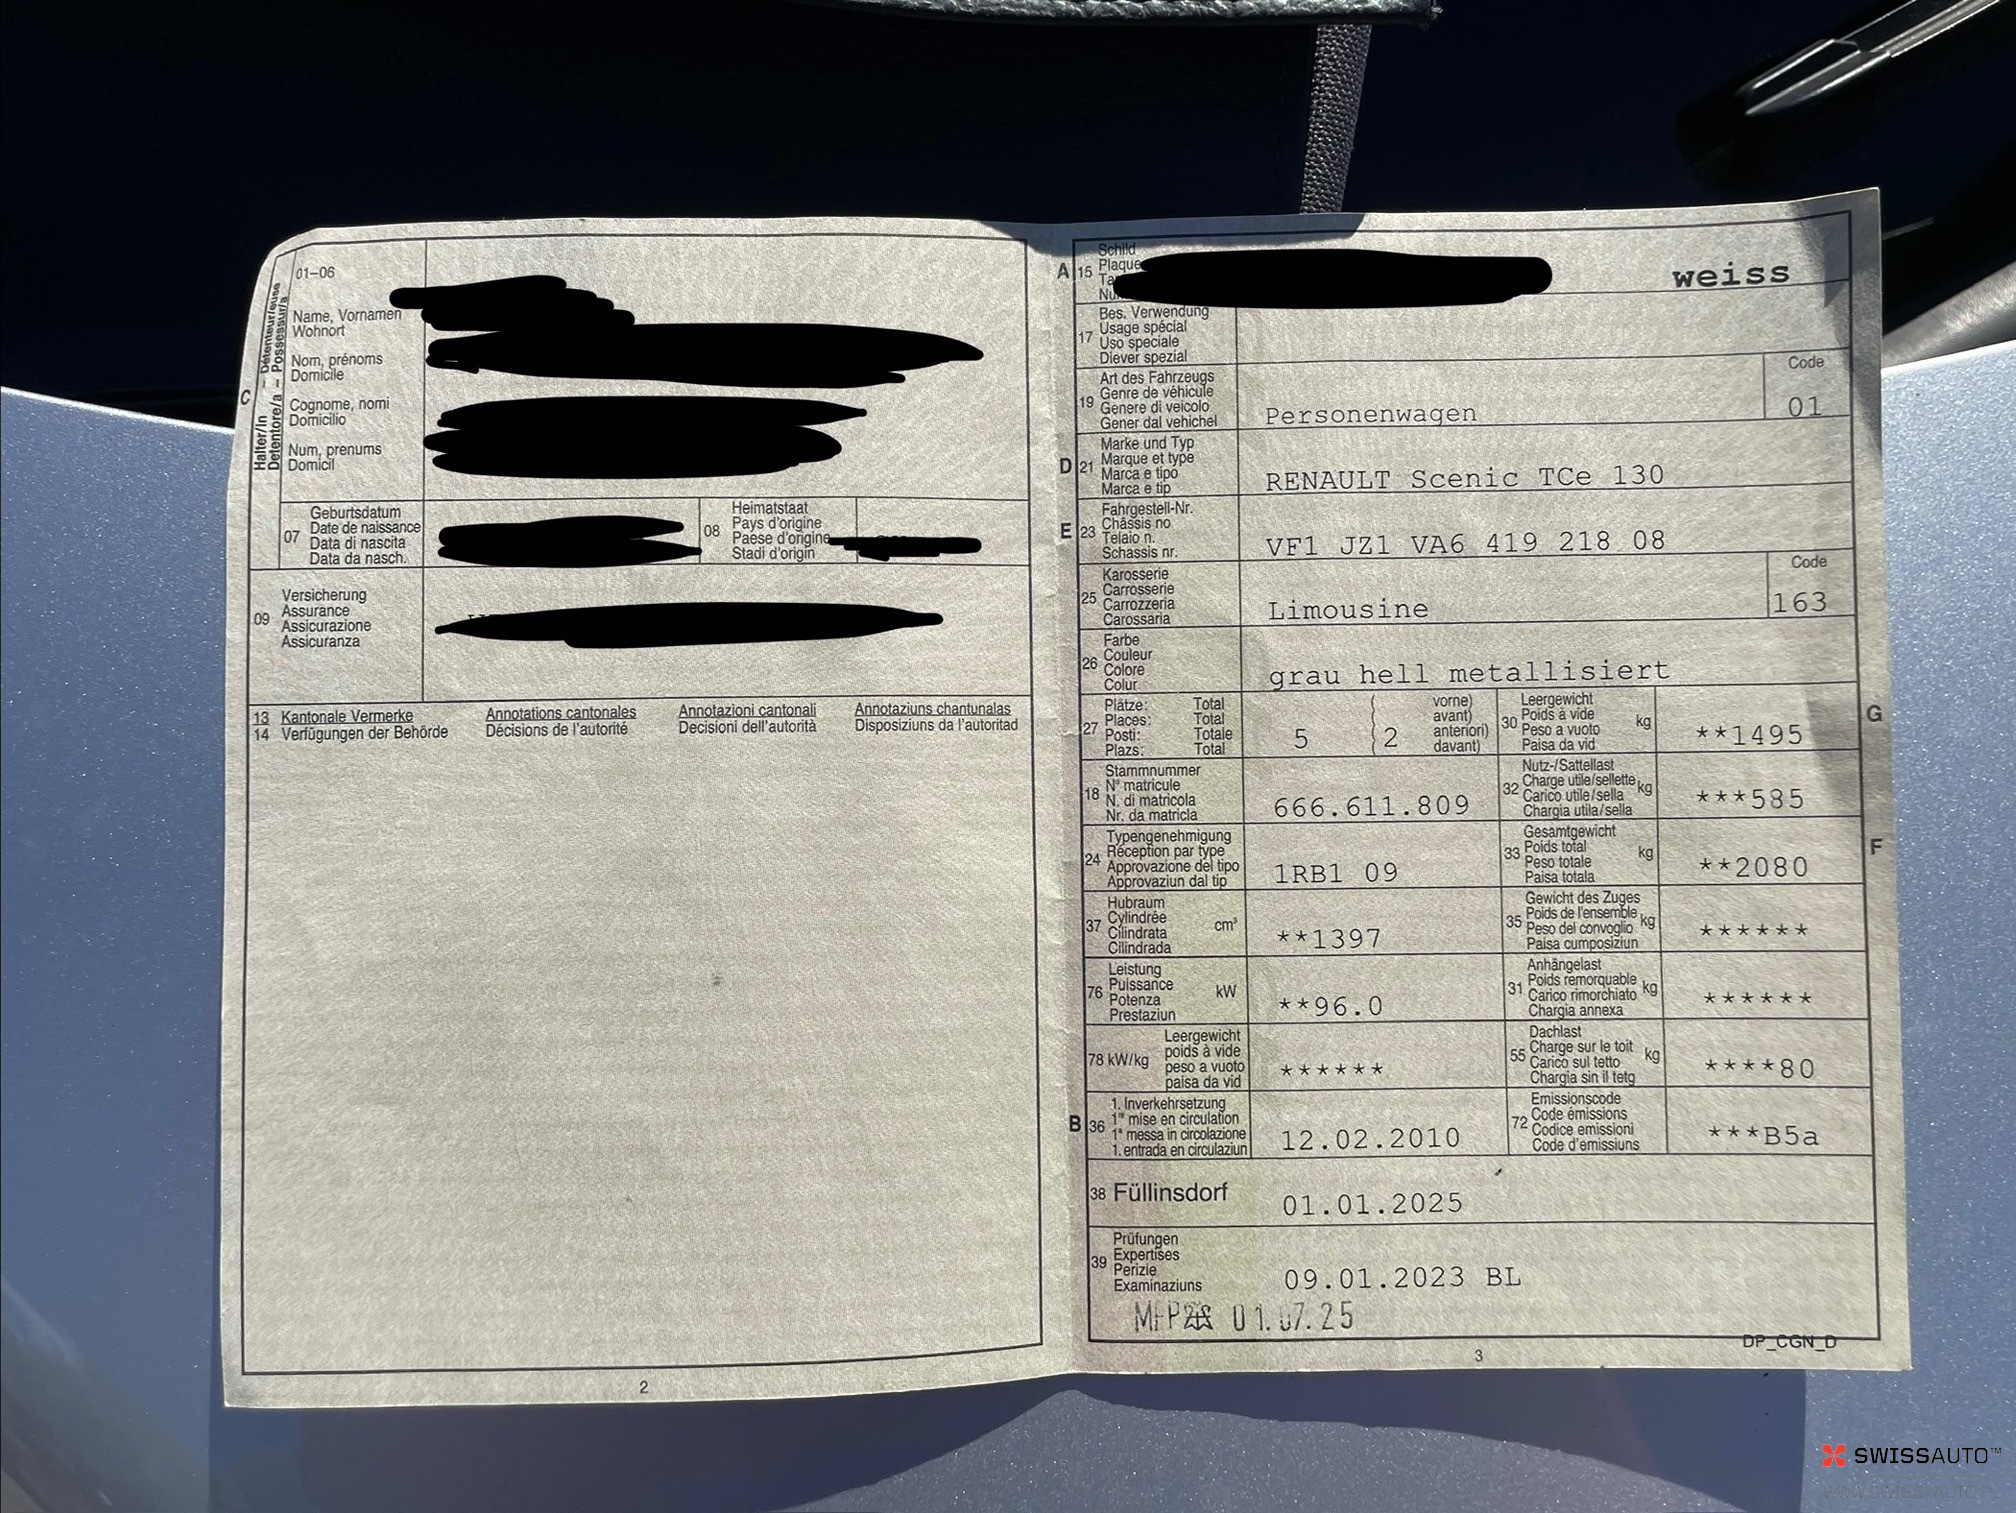 01-06
Halter/in – Détenteur/euse
Detentore/a – Possessur/a
C
Name, Vornamen
Wohnort
Nom, prénoms
Domicile
Cognome, nomi
Domicilio
Num, prenums
Domicil
07
Geburtsdatum
Date de naissance
Data di nascita
Data da nasch.
08
Heimatstaat
Pays d'origine
Paese d'origine
Stadi d'origin
09
Versicherung
Assurance
Assicurazione
Assicuranza
13 Kantonale Vermerke Annotations cantonales Annotazioni cantonali Annotaziuns chantunalas
14 Verfügungen der Behörde Décisions de l'autorité Decisioni dell'autorità Disposiziuns da l'autoritad
2
A 15
Schild
Plaque
weiss
17
Bes. Verwendung
Usage spécial
Uso speciale
Diever spezial
19
Art des Fahrzeugs
Genre de véhicule
Genere di veicolo
Gener dal vehichel
Personenwagen
Code
01
D 21
Marke und Typ
Marque et type
Marca e tipo
Marca e tip
RENAULT Scenic TCe 130
E 23
Fahrgestell-Nr.
Châssis no
Telaio n.
Schassis nr.
VF1 JZ1 VA6 419 218 08
25
Karosserie
Carrosserie
Carrozzeria
Carossaria
Limousine
Code
163
26
Farbe
Couleur
Colore
Colur
grau hell metallisiert
27
Plätze: Total
Places: Total
Posti: Totale
Plazs: Total
5
2
vorne)
avant)
anteriori)
davant)
G
30
Leergewicht
Poids à vide
Peso a vuoto
Paisa da vid
kg
**1495
18
Stammnummer
N° matricule
N. di matricola
Nr. da matricla
666.611.809
32
Nutz-/Sattellast
Charge utile/sellette
Carico utile/sella
Chargia utila/sella
kg
***585
24
Typengenehmigung
Réception par type
Approvazione del tipo
Approvaziun dal tip
1RB1 09
F
33
Gesamtgewicht
Poids total
Peso totale
Paisa totala
kg
**2080
37
Hubraum
Cylindrée
Cilindrata
Cilindrada
cm³
**1397
35
Gewicht des Zuges
Poids de l'ensemble
Peso del convoglio
Paisa cumposiziun
kg
******
76
Leistung
Puissance
Potenza
Prestaziun
kW
**96.0
31
Anhängelast
Poids remorquable
Carico rimorchiato
Chargia annexa
kg
******
78 kW/kg
Leergewicht
poids à vide
peso a vuoto
paisa da vid
******
55
Dachlast
Charge sur le toit
Carico sul tetto
Chargia sin il tetg
kg
****80
B 36
1. Inverkehrsetzung
1re mise en circulation
1a messa in circolazione
1. entrada en circulaziun
12.02.2010
72
Emissionscode
Code émissions
Codice emissioni
Code d'emissiuns
***B5a
38 Füllinsdorf
01.01.2025
39
Prüfungen
Expertises
Perizie
Examinaziuns
09.01.2023 BL
01.07.25
DP_CGN_D
3
SWISSAUTO™